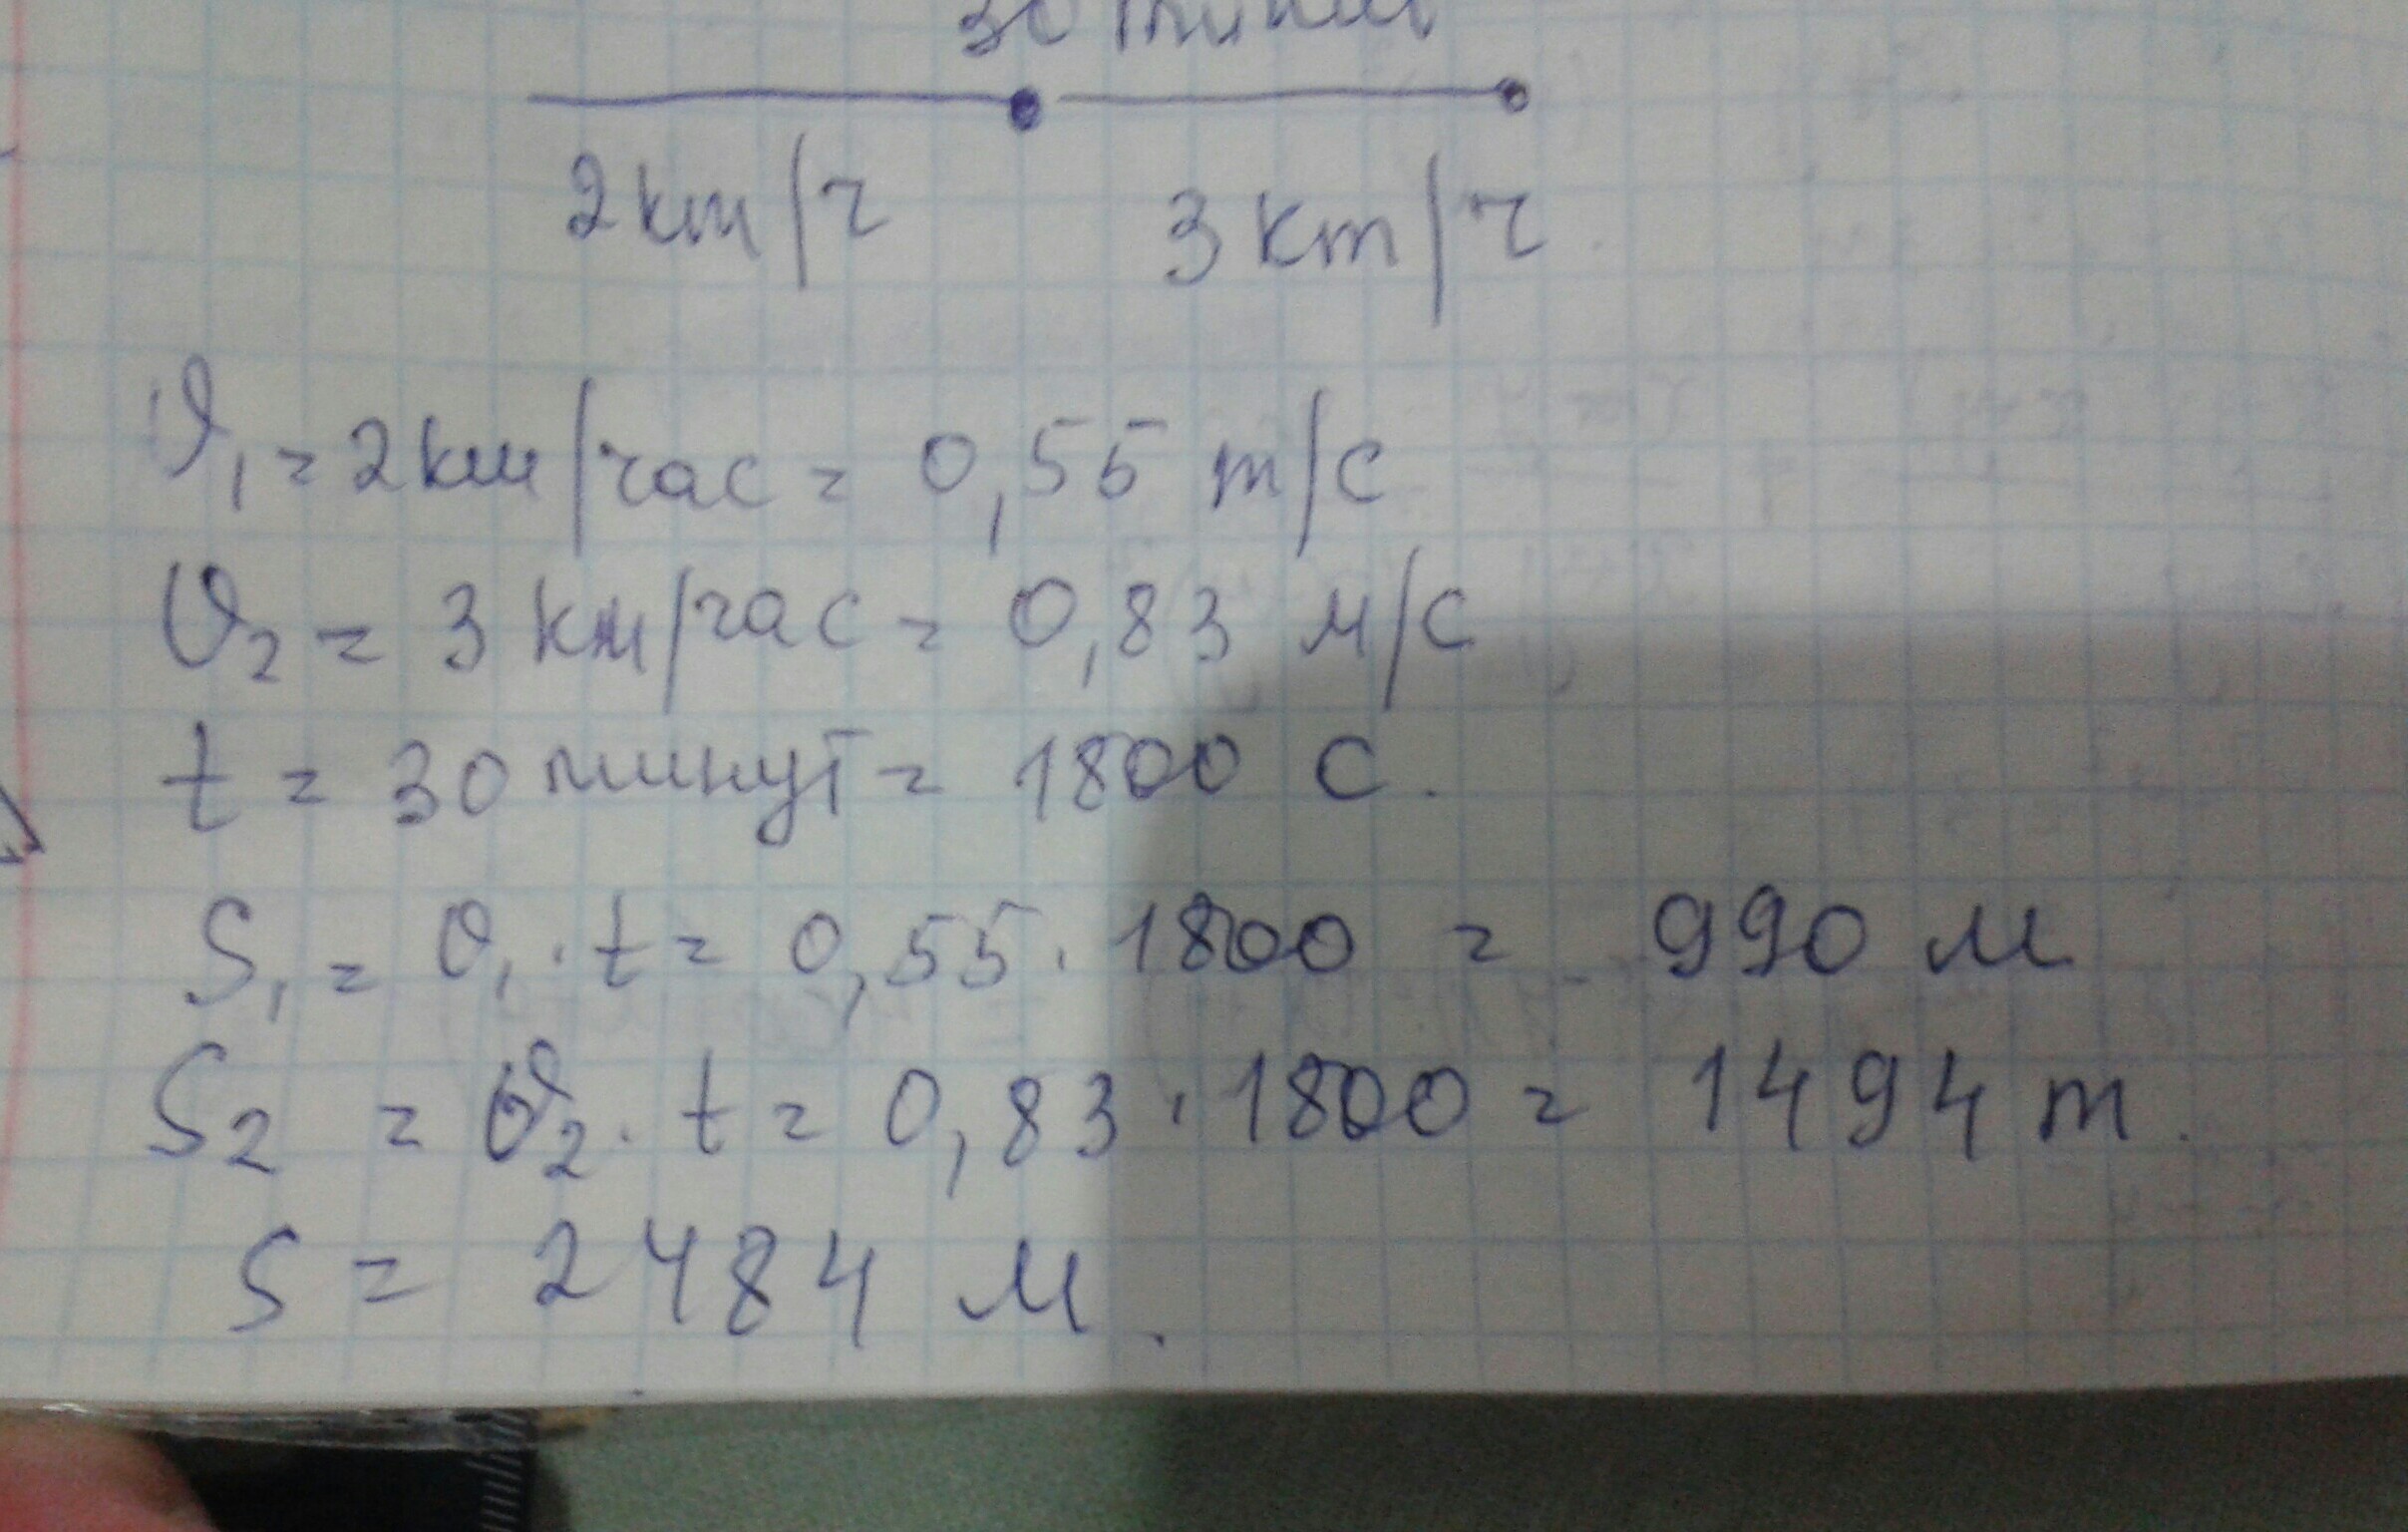 30 минут
2 км/ч 3 км/ч
υ₁ = 2 км/час = 0,55 м/с
υ₂ = 3 км/час = 0,83 м/с
t = 30 минут = 1800 с.
S₁ = υ₁ · t = 0,55 · 1800 = 990 м
S₂ = υ₂ · t = 0,83 · 1800 = 1494 м.
S = 2484 м.